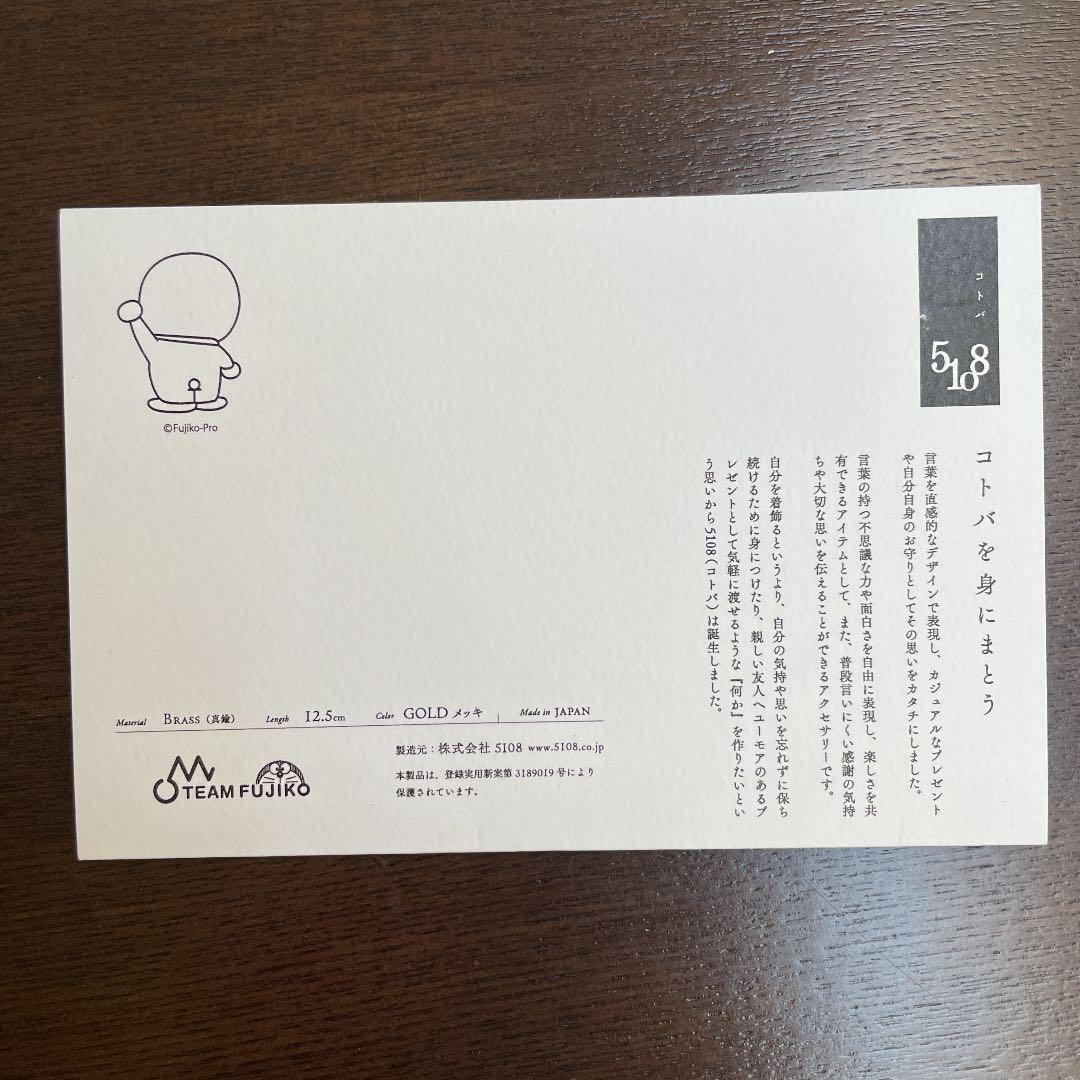 コトバ
5108
コトバを身にまとう
言葉を直感的なデザインで表現し、カジュアルなプレゼント
や自分自身のお守りとしてその思いをカタチにしました。
言葉の持つ不思議な力や面白さを自由に表現し、楽しさを共
有できるアイテムとして、また、普段言いにくい感謝の気持
ちや大切な思いを伝えることができるアクセサリーです。
自分を着飾るというより、自分の気持や思いを忘れずに保ち
続けるために身につけたり、親しい友人へユーモアのあるプ
レゼントとして気軽に渡せるような『何か』を作りたいとい
う思いから5108（コトバ）は誕生しました。
©Fujiko-Pro
Material BRASS（真鍮） Length 12.5cm Color GOLD メッキ Made in JAPAN
TEAM FUJIKO
製造元：株式会社 5108 www.5108.co.jp
本製品は、登録実用新案第 3189019 号により
保護されています。